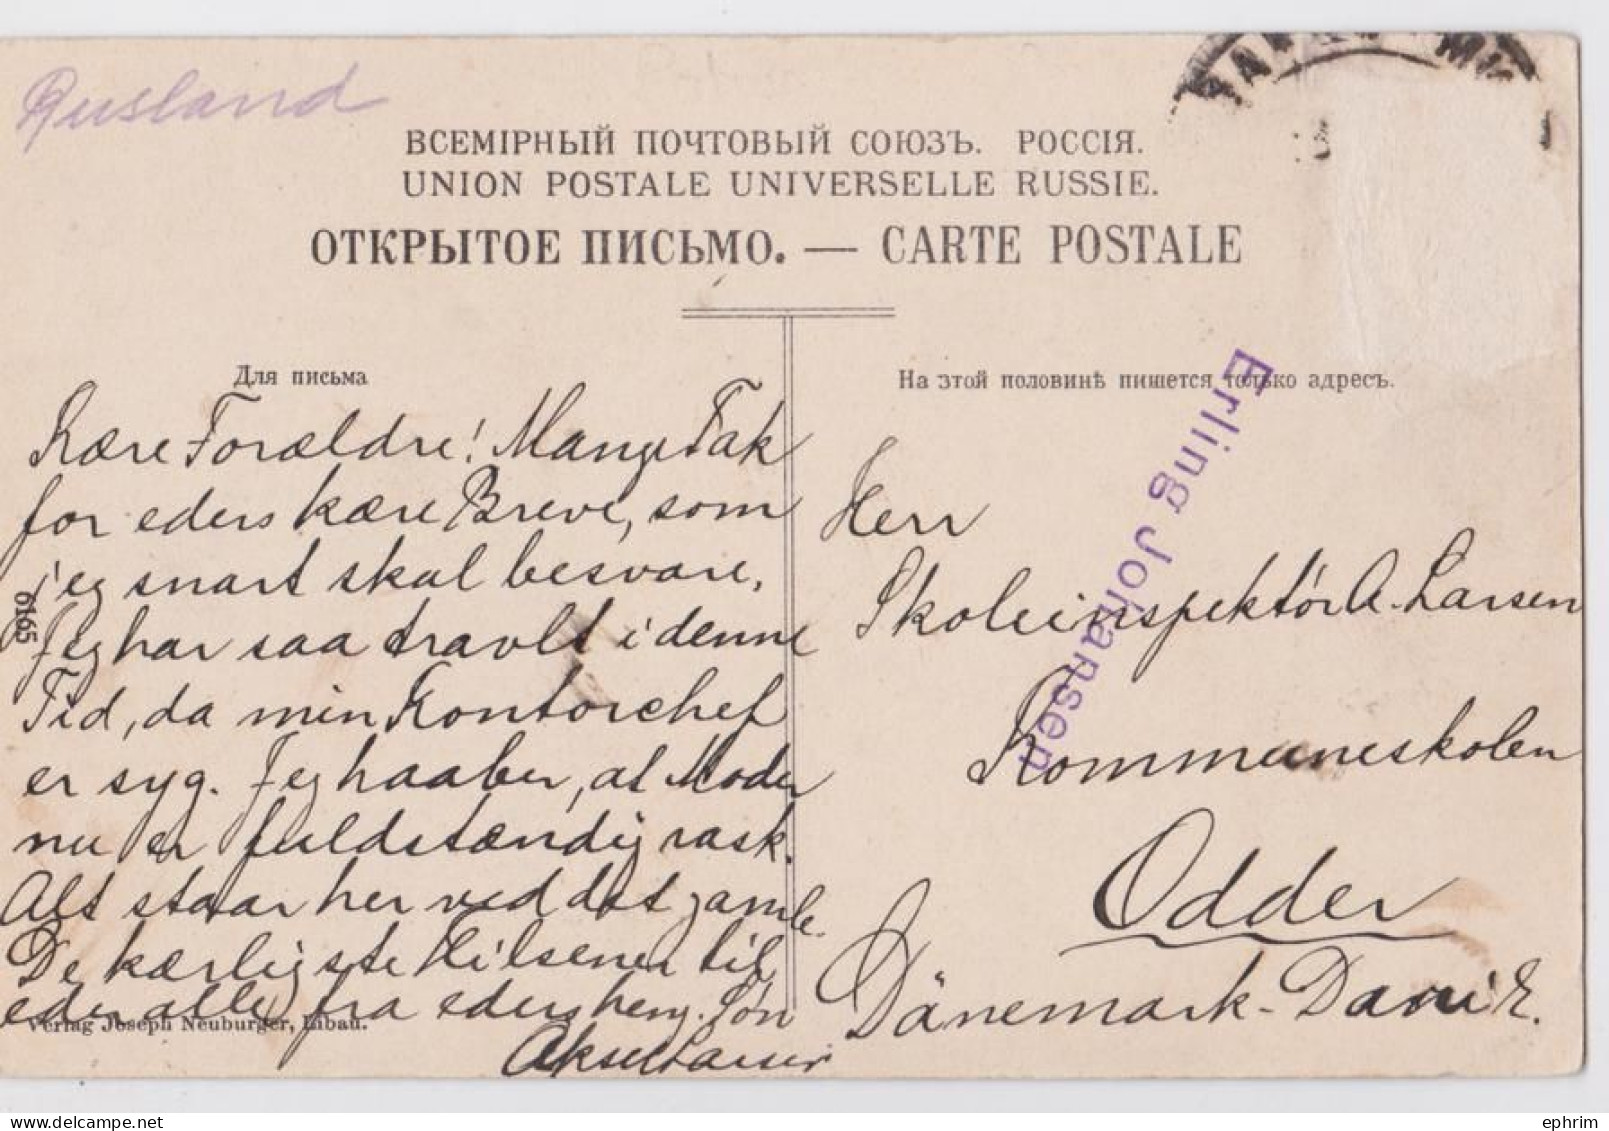 Rusland
ВСЕМІРНЫЙ ПОЧТОВЫЙ СОЮЗЪ. РОССІЯ.
UNION POSTALE UNIVERSELLE RUSSIE.
ОТКРЫТОЕ ПИСЬМО. — CARTE POSTALE
Для письма
Kære Forældre! Mange Tak
for eders kære Breve, som
jeg snart skal besvare.
Jeg har saa travlt i denne
Tid, da min Kontorchef
er syg. Jeg haaber, at Moder
nu er fuldstændig rask.
Alt staar her ved det gamle.
De kærligste Hilsener til
eder alle fra eders heng. Søn
Aksel Larsen
6165
Verlag Joseph Neuburger, Libau.
На этой половинѣ пишется только адресъ.
Erling Johansen
Herr
Skoleinspektör A. Larsen
Kommuneskolen
Odder
Dänemark - Danië.
ephrim